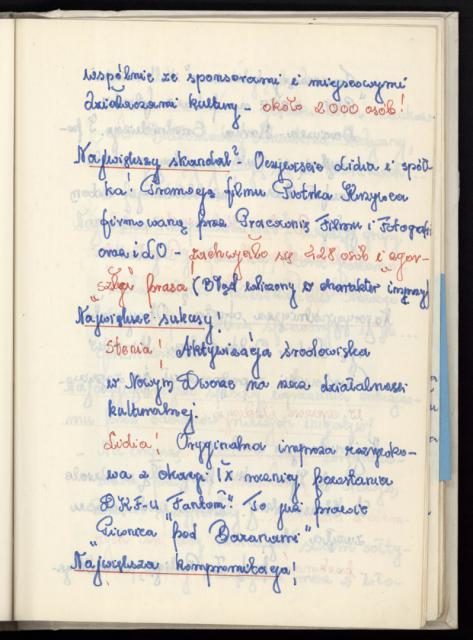 wspólnie ze sponsorami i miejscowymi
działaczami kultury - około 2000 osób!
Największy skandal? Oczywiście Lidia i spół-
ka! Promocja filmu Piotrka Krzywca
firmowaną przez Pracownię Filmu i Fotografii
oraz i LO - zachwyciło się 428 osób i "zgor-
szyła" prasa (Błąd wliczony w charakter imprezy)
Największe sukcesy!
Stenia! Aktywizacja środowiska
w Nowym Dworze na rzecz działalności
kulturalnej.
Lidia! Oryginalna impreza rozrywko-
wa z okazji IX rocznicy powstania
DKF-u "Fantom". To już prawie
"Piwnica pod Baranami"
Największa kompromitacja!